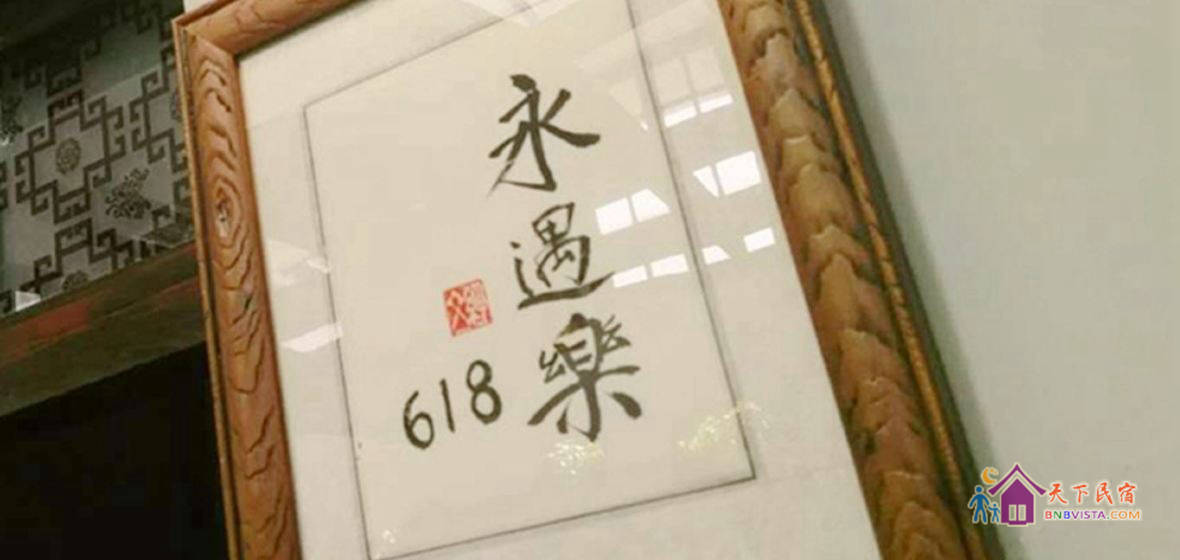 永遇樂
618
天下民宿
BNBVISTA.COM